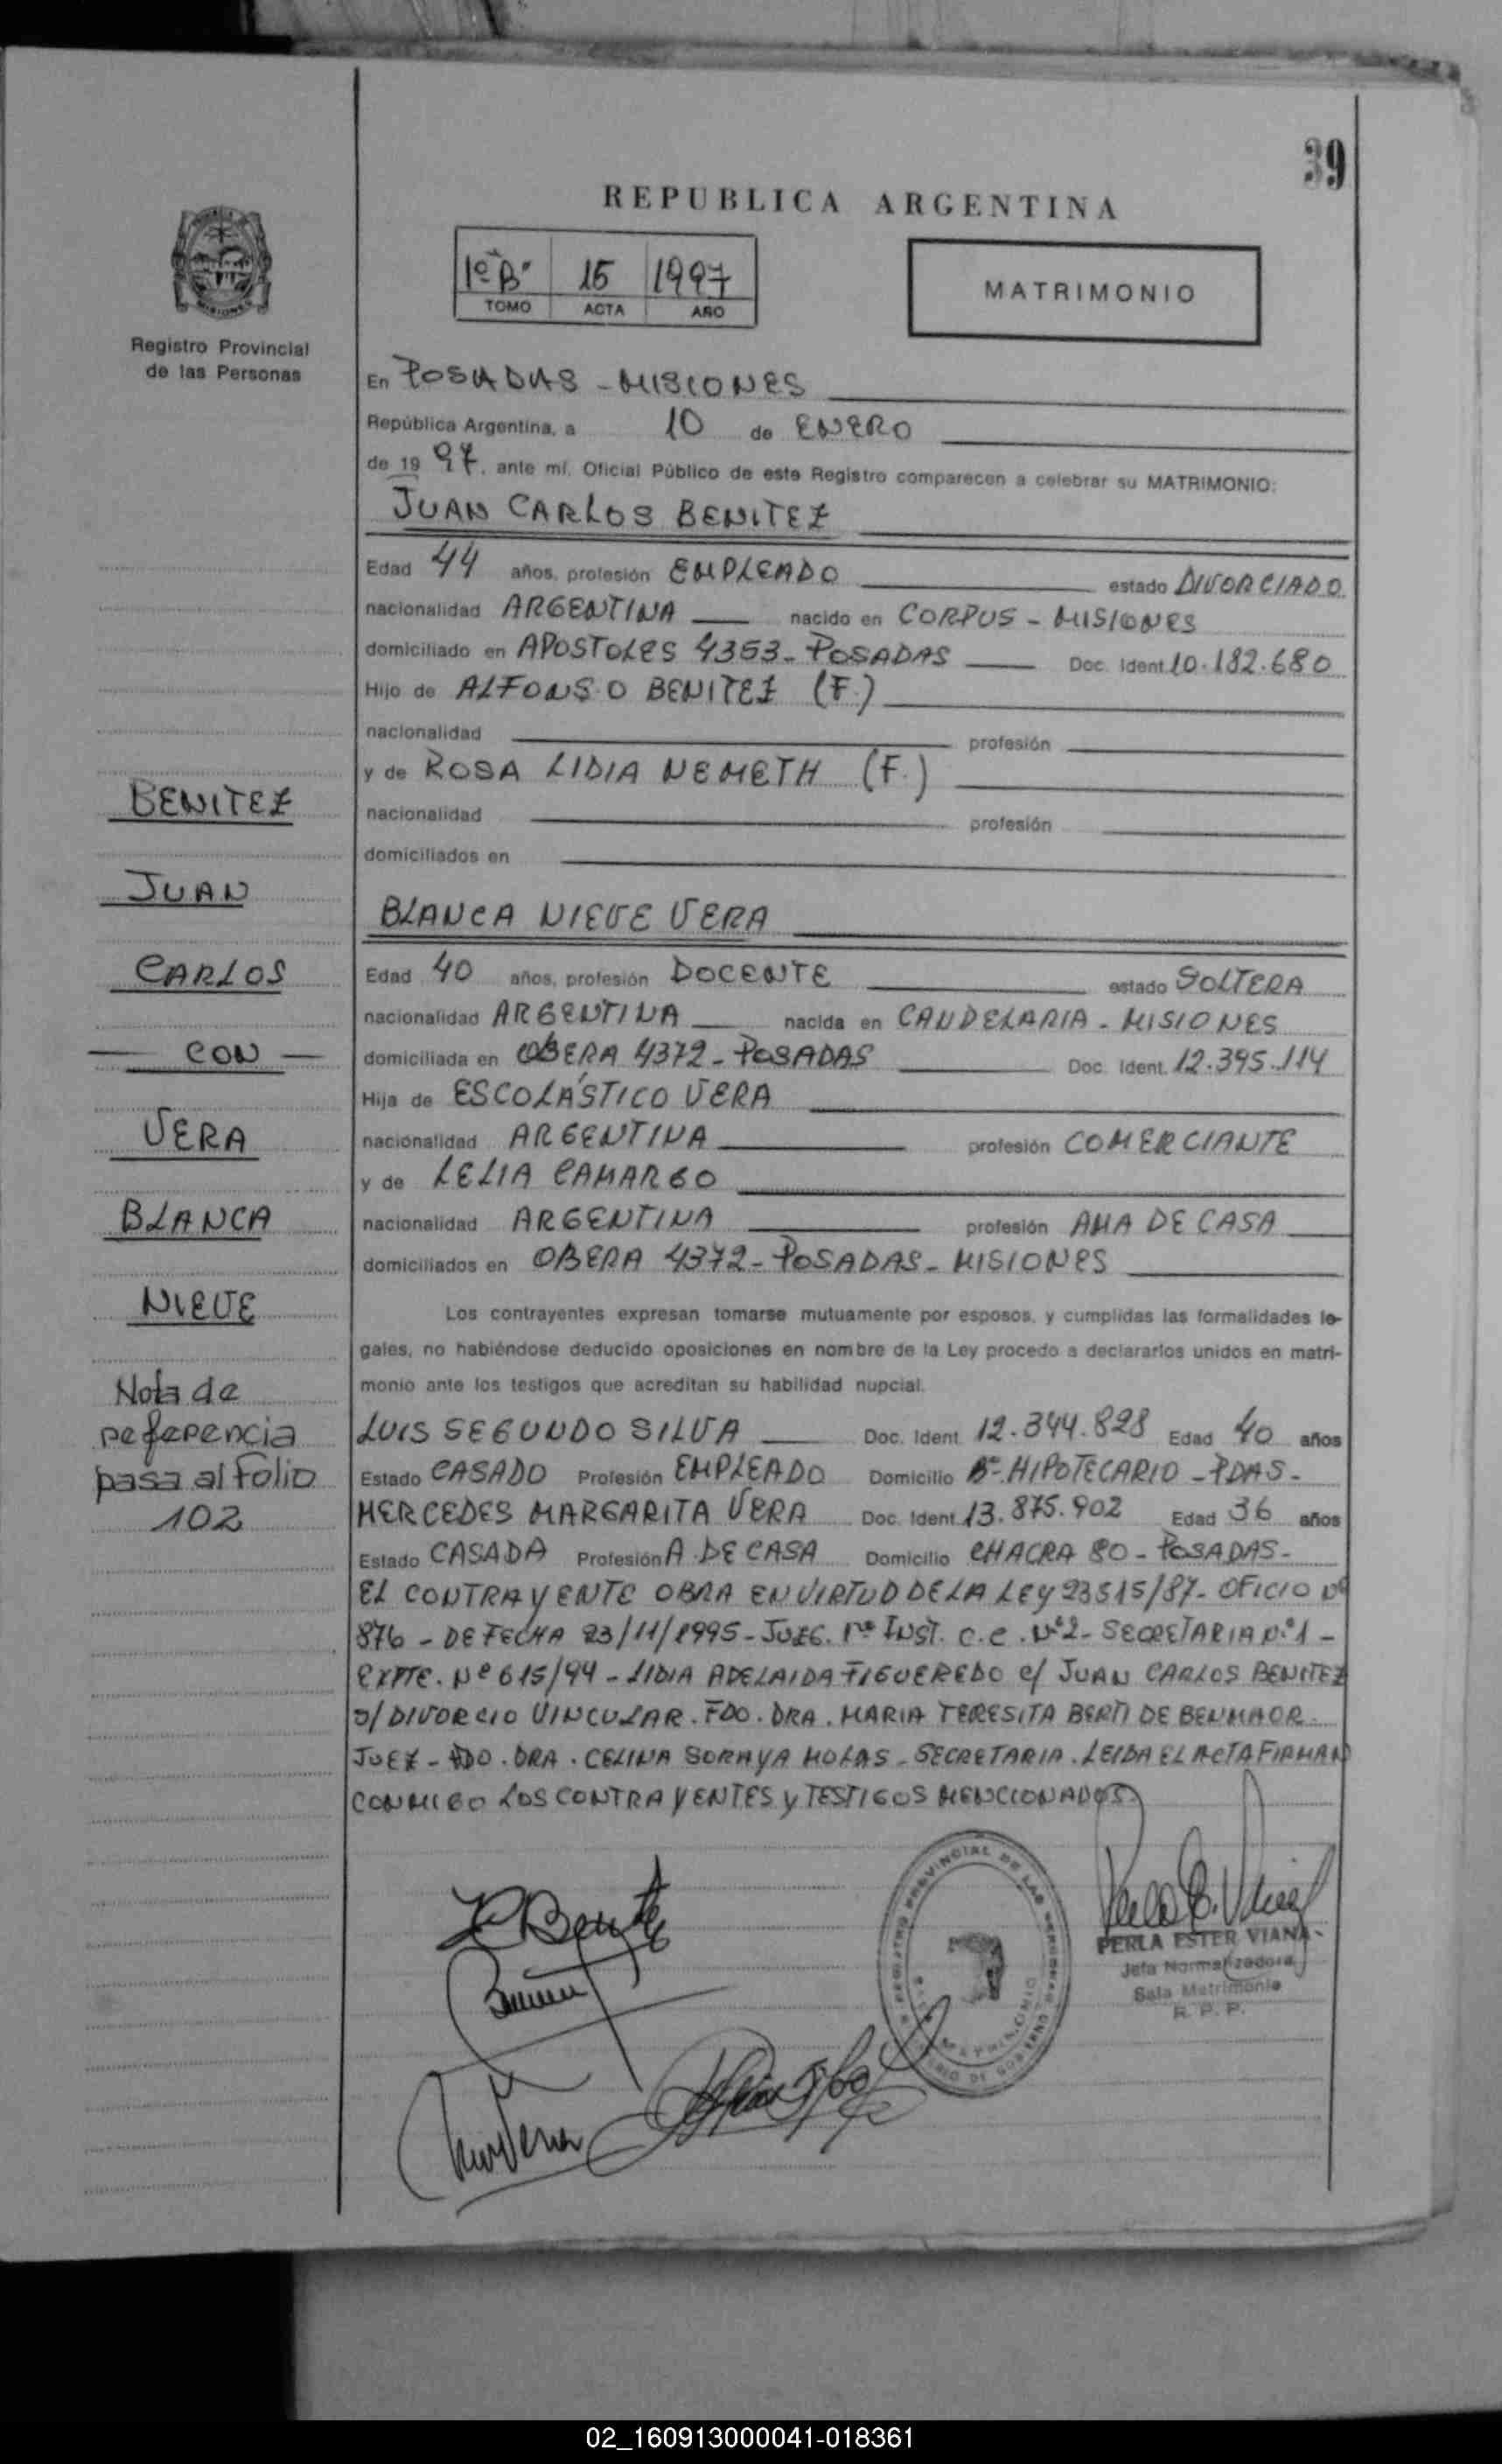 39
REPUBLICA ARGENTINA
1º "B" 15 1997
TOMO ACTA AÑO
MATRIMONIO
Registro Provincial
de las Personas
En POSADAS - MISIONES
República Argentina, a 10 de ENERO
de 19 97, ante mí, Oficial Público de este Registro comparecen a celebrar su MATRIMONIO:
JUAN CARLOS BENITEZ
Edad 44 años, profesión EMPLEADO estado DIVORCIADO
nacionalidad ARGENTINA nacido en CORPUS - MISIONES
domiciliado en APOSTOLES 4353 - POSADAS Doc. Ident. 10.182.680
Hijo de ALFONSO BENITEZ (F.)
nacionalidad profesión
y de ROSA LIDIA NEMETH (F.)
nacionalidad profesión
domiciliados en
BLANCA NIEVE VERA
Edad 40 años, profesión DOCENTE estado SOLTERA
nacionalidad ARGENTINA nacida en CANDELARIA - MISIONES
domiciliada en OBERA 4372 - POSADAS Doc. Ident. 12.395.114
Hija de ESCOLÁSTICO VERA
nacionalidad ARGENTINA profesión COMERCIANTE
y de LELIA CAMARGO
nacionalidad ARGENTINA profesión AMA DE CASA
domiciliados en OBERA 4372 - POSADAS - MISIONES
Los contrayentes expresan tomarse mutuamente por esposos, y cumplidas las formalidades le-
gales, no habiéndose deducido oposiciones en nombre de la Ley procedo a declararlos unidos en matri-
monio ante los testigos que acreditan su habilidad nupcial.
LUIS SEGUNDO SILVA Doc. Ident. 12.344.828 Edad 40 años
Estado CASADO Profesión EMPLEADO Domicilio Bº- HIPOTECARIO - PDAS -
MERCEDES MARGARITA VERA Doc. Ident. 13.875.902 Edad 36 años
Estado CASADA Profesión A. DE CASA Domicilio CHACRA 80 - POSADAS -
EL CONTRAYENTE OBRA EN VIRTUD DE LA LEY 23515/87 - OFICIO Nº
876 - DE FECHA 23/11/1995 - JUZG. 1ra INST. C.C. Nº2 - SECRETARIA Nº1 -
EXPTE. Nº 615/94 - LIDIA ADELAIDA FIGUEREDO C/ JUAN CARLOS BENITEZ
S/ DIVORCIO VINCULAR. FDO. DRA. MARIA TERESITA BERTI DE BENMAOR.
JUEZ - FDO. DRA. CELINA SORAYA MOLAS - SECRETARIA. LEIDA EL ACTA FIRMAN
CONMIGO LOS CONTRAYENTES Y TESTIGOS MENCIONADOS
BENITEZ
JUAN
CARLOS
CON
VERA
BLANCA
NIEVE
Nota de
referencia
pasa al folio
102
PERLA ESTER VIANA
Jefa Normalizadora
Sala Matrimonio
R. P. P.
02_160913000041-018361